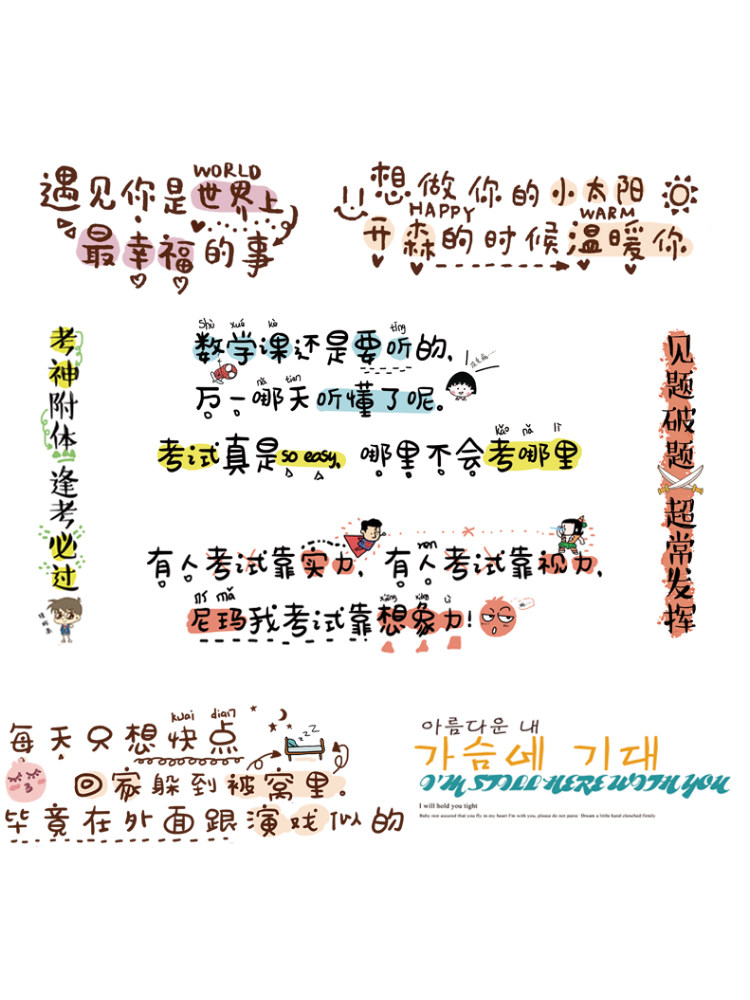 WORLD
遇见你是世界上
最幸福的事
想做你的小太阳
HAPPY WARM
开森的时候温暖你
考神附体逢考必过
shù xué kè tīng
数学课还是要听的,
nǎ tian
万一哪天听懂了呢。
kǎo nǎ lǐ
考试真是so easy, 哪里不会考哪里
见题破题超常发挥
有人考试靠实力, 有人考试靠视力,
ren
ní mǎ xiǎng xiàng lì
尼玛我考试靠想象力!
kuai dian
每天只想快点
zzZ
回家躲到被窝里。
毕竟在外面跟演戏似的
아름다운 내
가슴에 기대
I'M STILL HERE WITH YOU
I will hold you tight
Baby rest assured that you fly in my heart I'm with you, please do not panic Dream a little hand clenched firmly